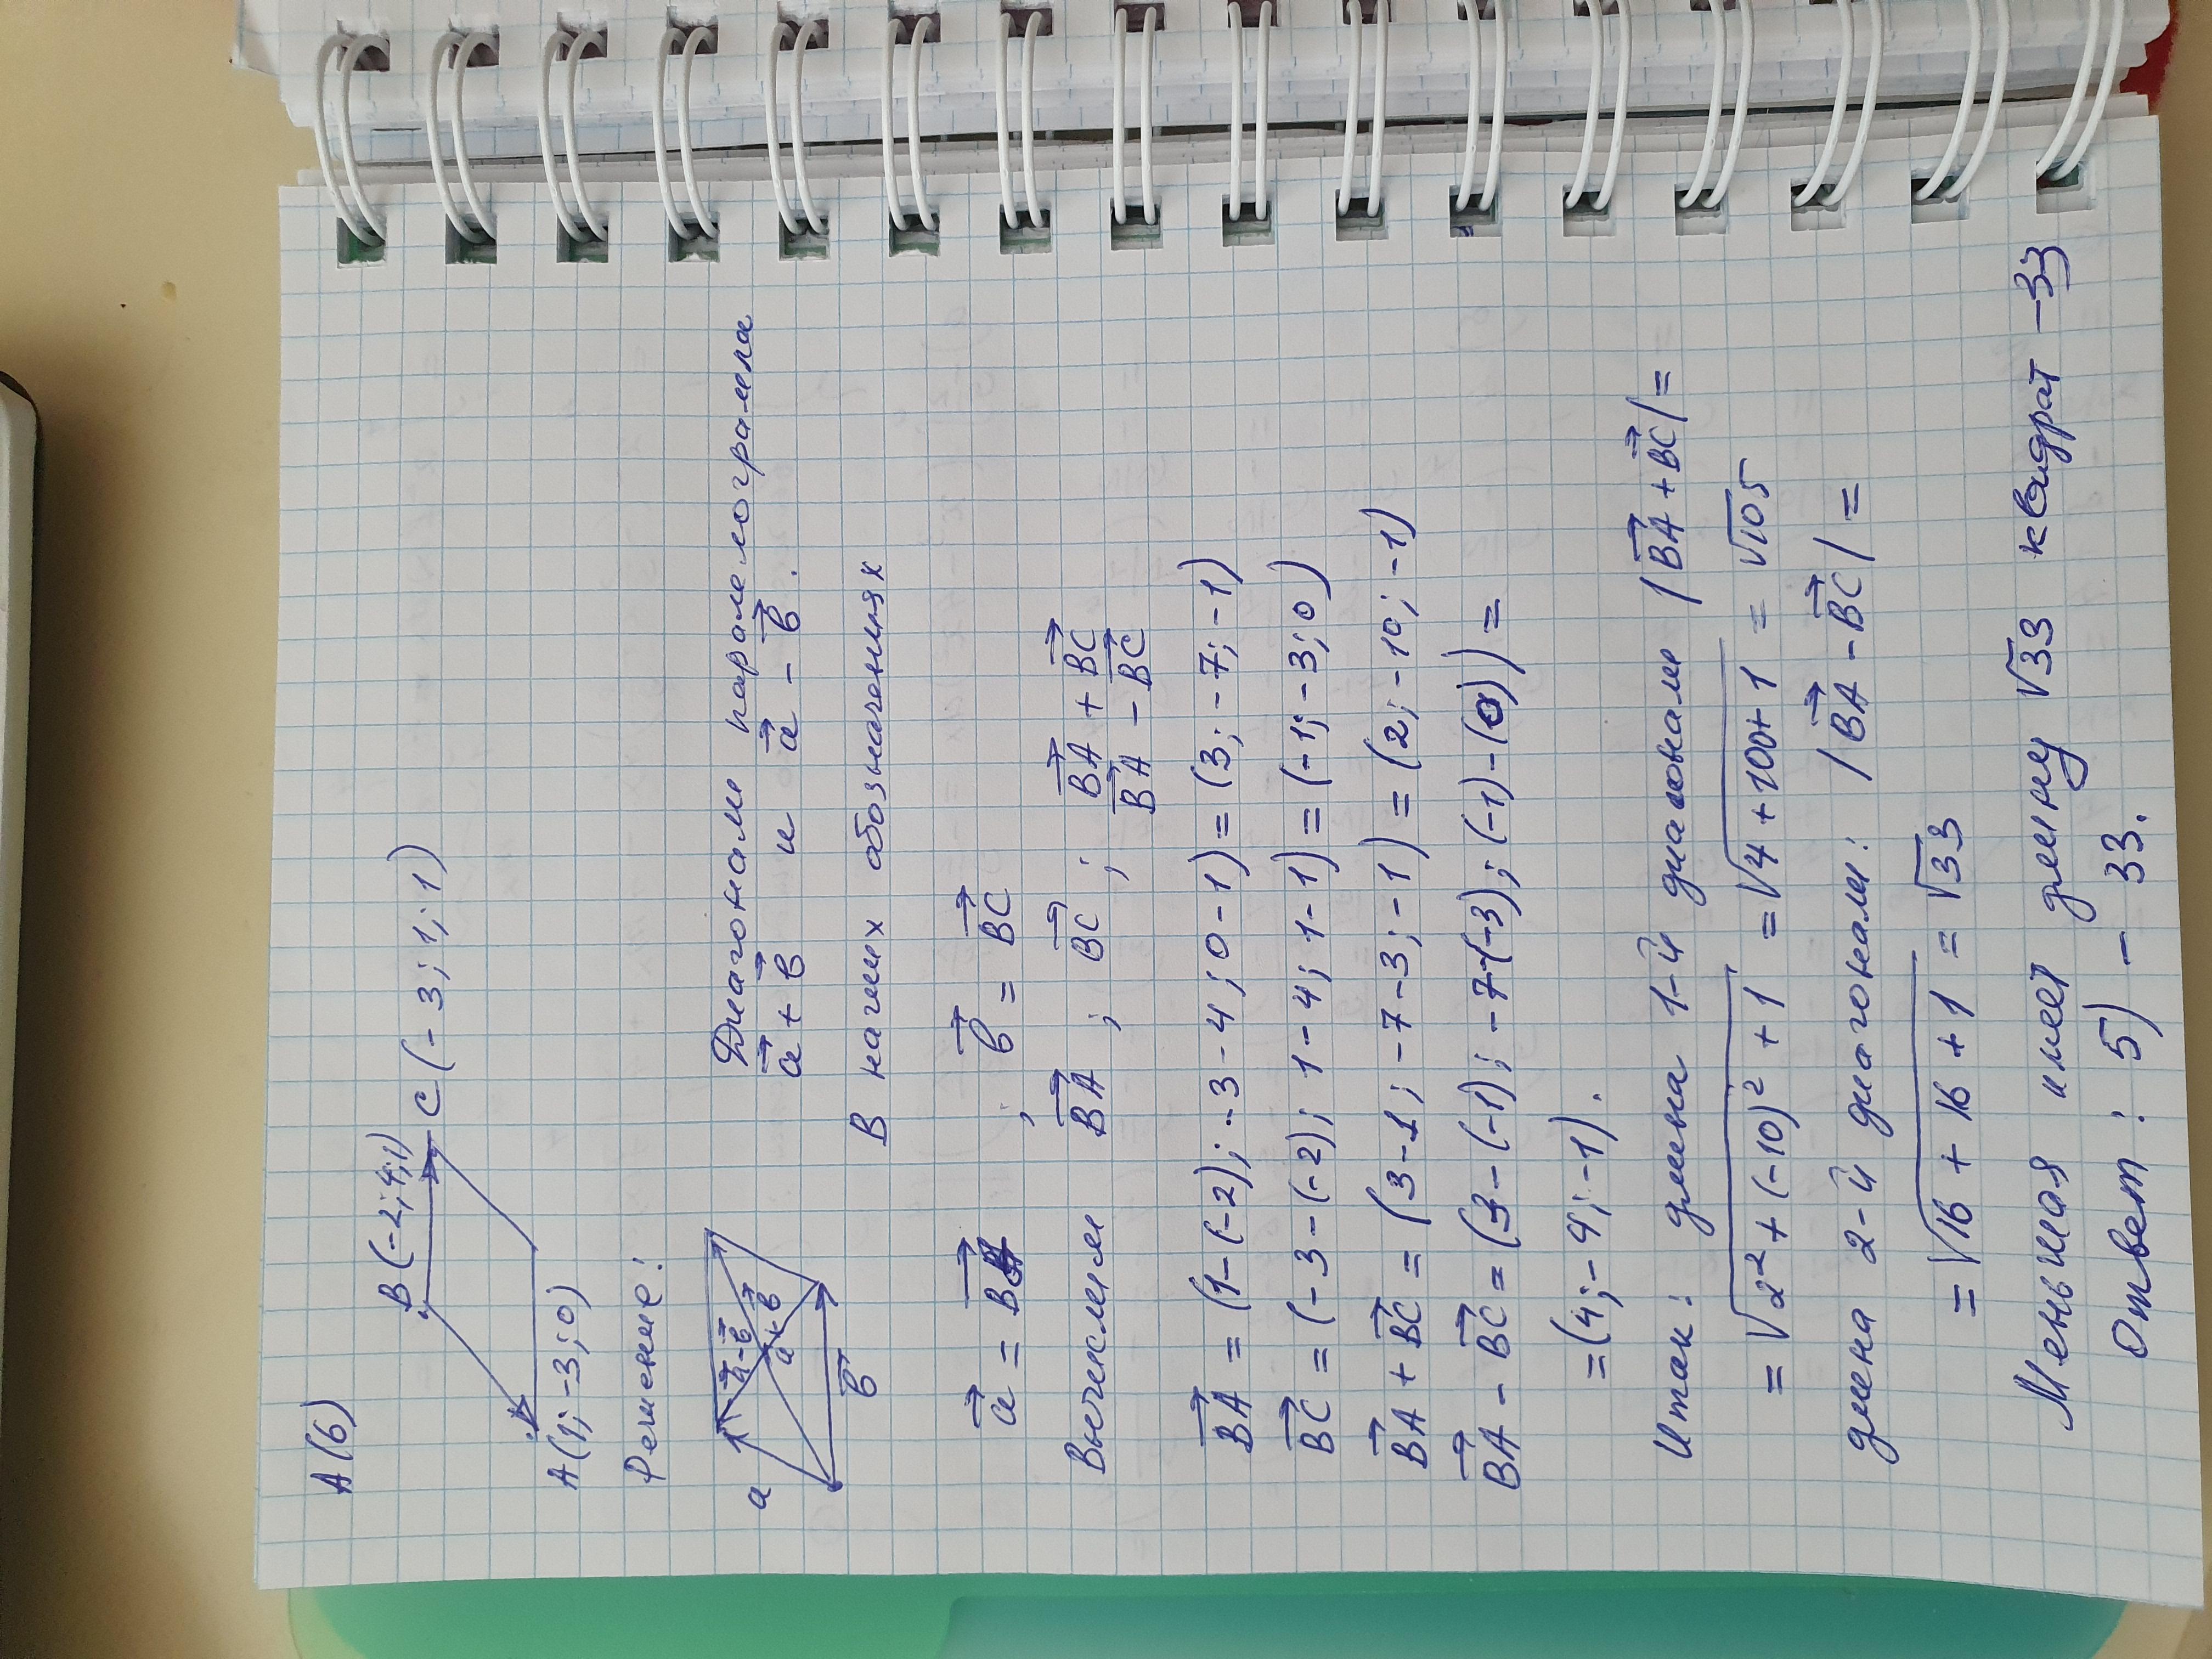 A(6)
B(-2;4;1)
C(-3;1;1)
A(1;-3;0)
Решение:
Диагонали паралелограмма
a a-b
a+b и a-b.
a+b
b
В наших обозначениях
a = BA ; b = BC
Вычислим BA ; BC ; BA + BC
BA - BC
BA = (1-(-2); -3-4; 0-1) = (3; -7; -1)
BC = (-3-(-2); 1-4; 1-1) = (-1; -3; 0)
BA + BC = (3-1; -7-3; -1) = (2; -10; -1)
BA - BC = (3-(-1); -7-(-3); (-1)-(0)) =
=(4; -4; -1).
Итак: длина 1-й диагонали |BA+BC| =
= √2²+(-10)²+1 = √4+100+1 = √105
длина 2-й диагонали: |BA-BC| =
= √16+16+1 = √33
Меньшая имеет длину √33 квадрат -33
Ответ: 5) - 33.